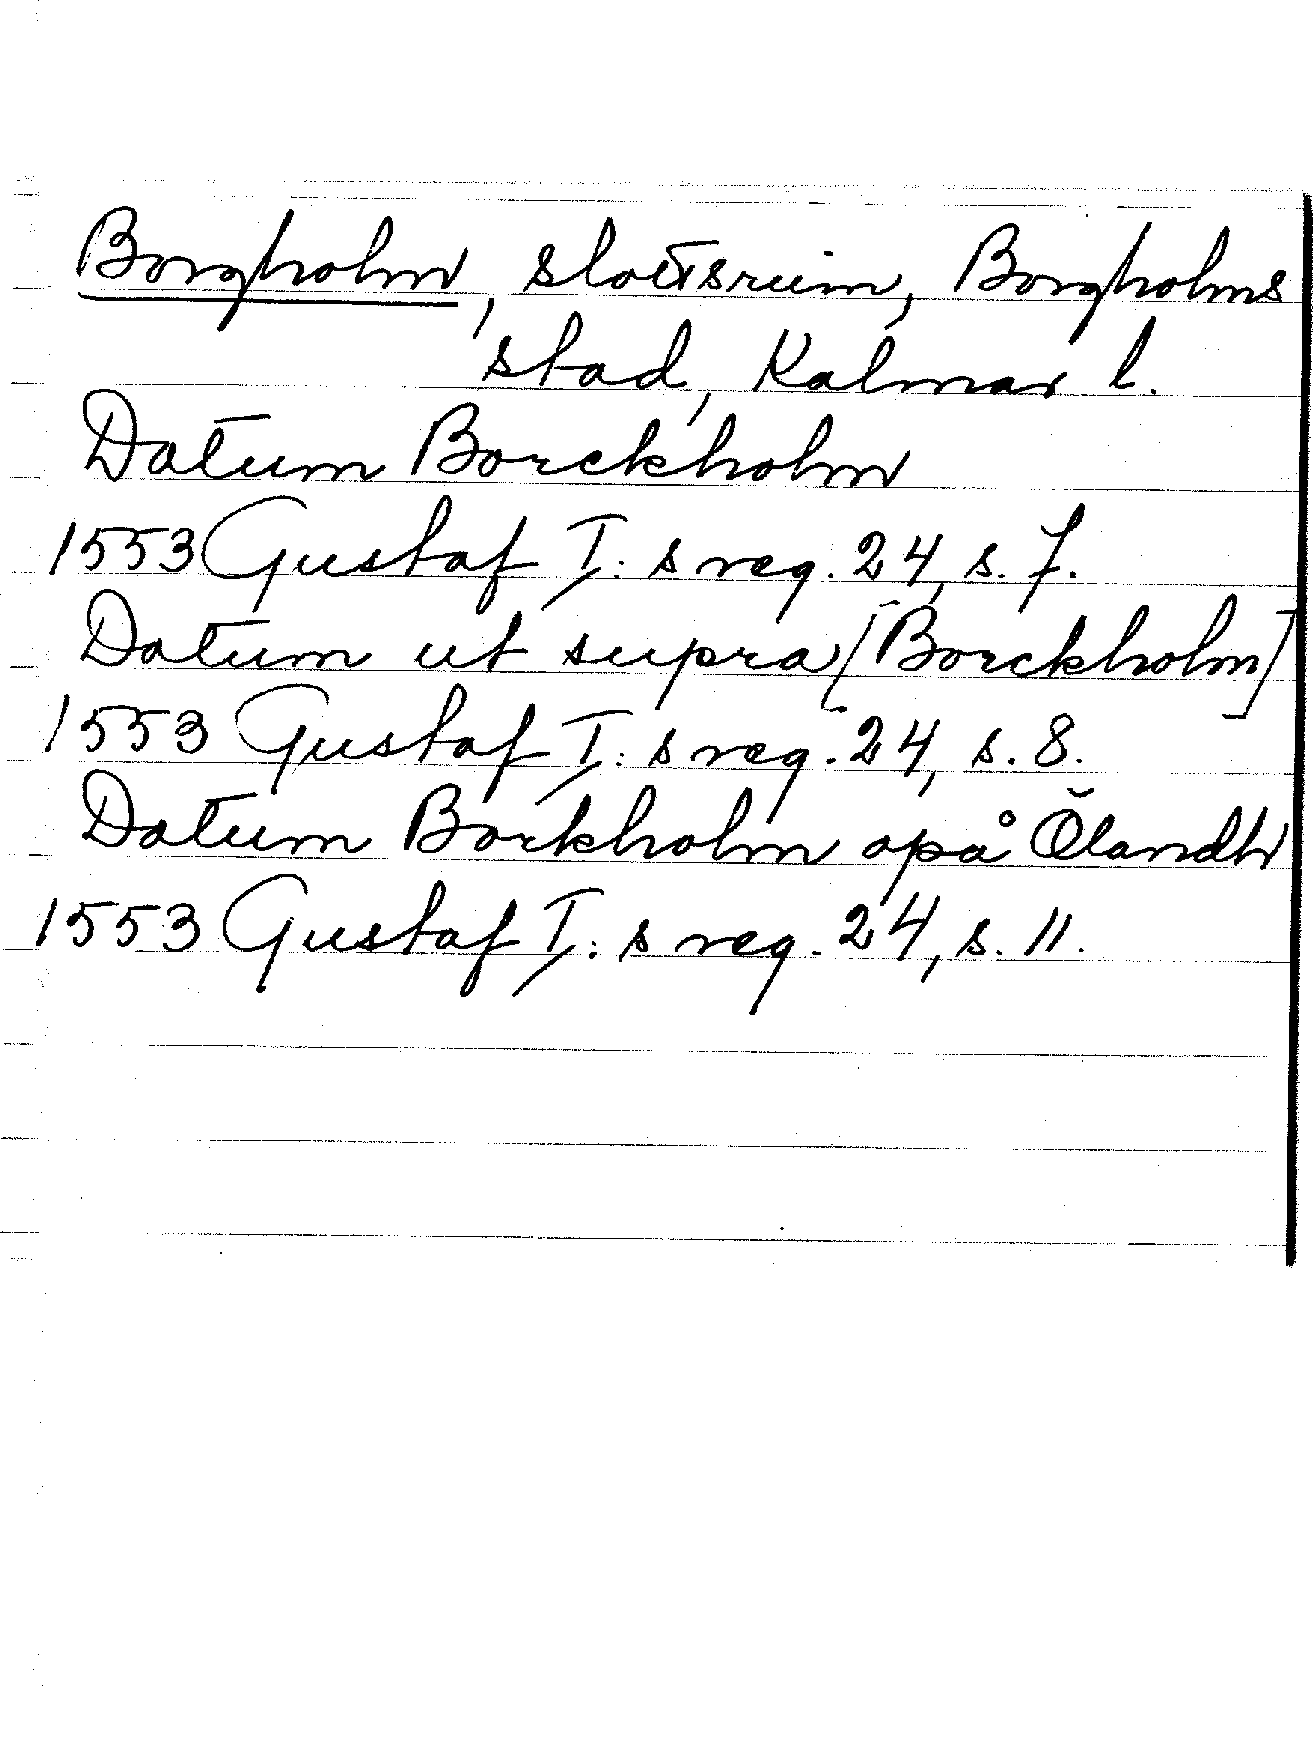 Borgholm, slottsruin, Borgholms
stad, Kalmar l.
Datum Borckholm
1553 Gustaf I: s reg. 24, s. 7.
Datum ut supra [Borckholm]
1553 Gustaf I: s reg. 24, s. 8.
Datum Borkholm opå Ölandh
1553 Gustaf I: s reg. 24, s. 11.